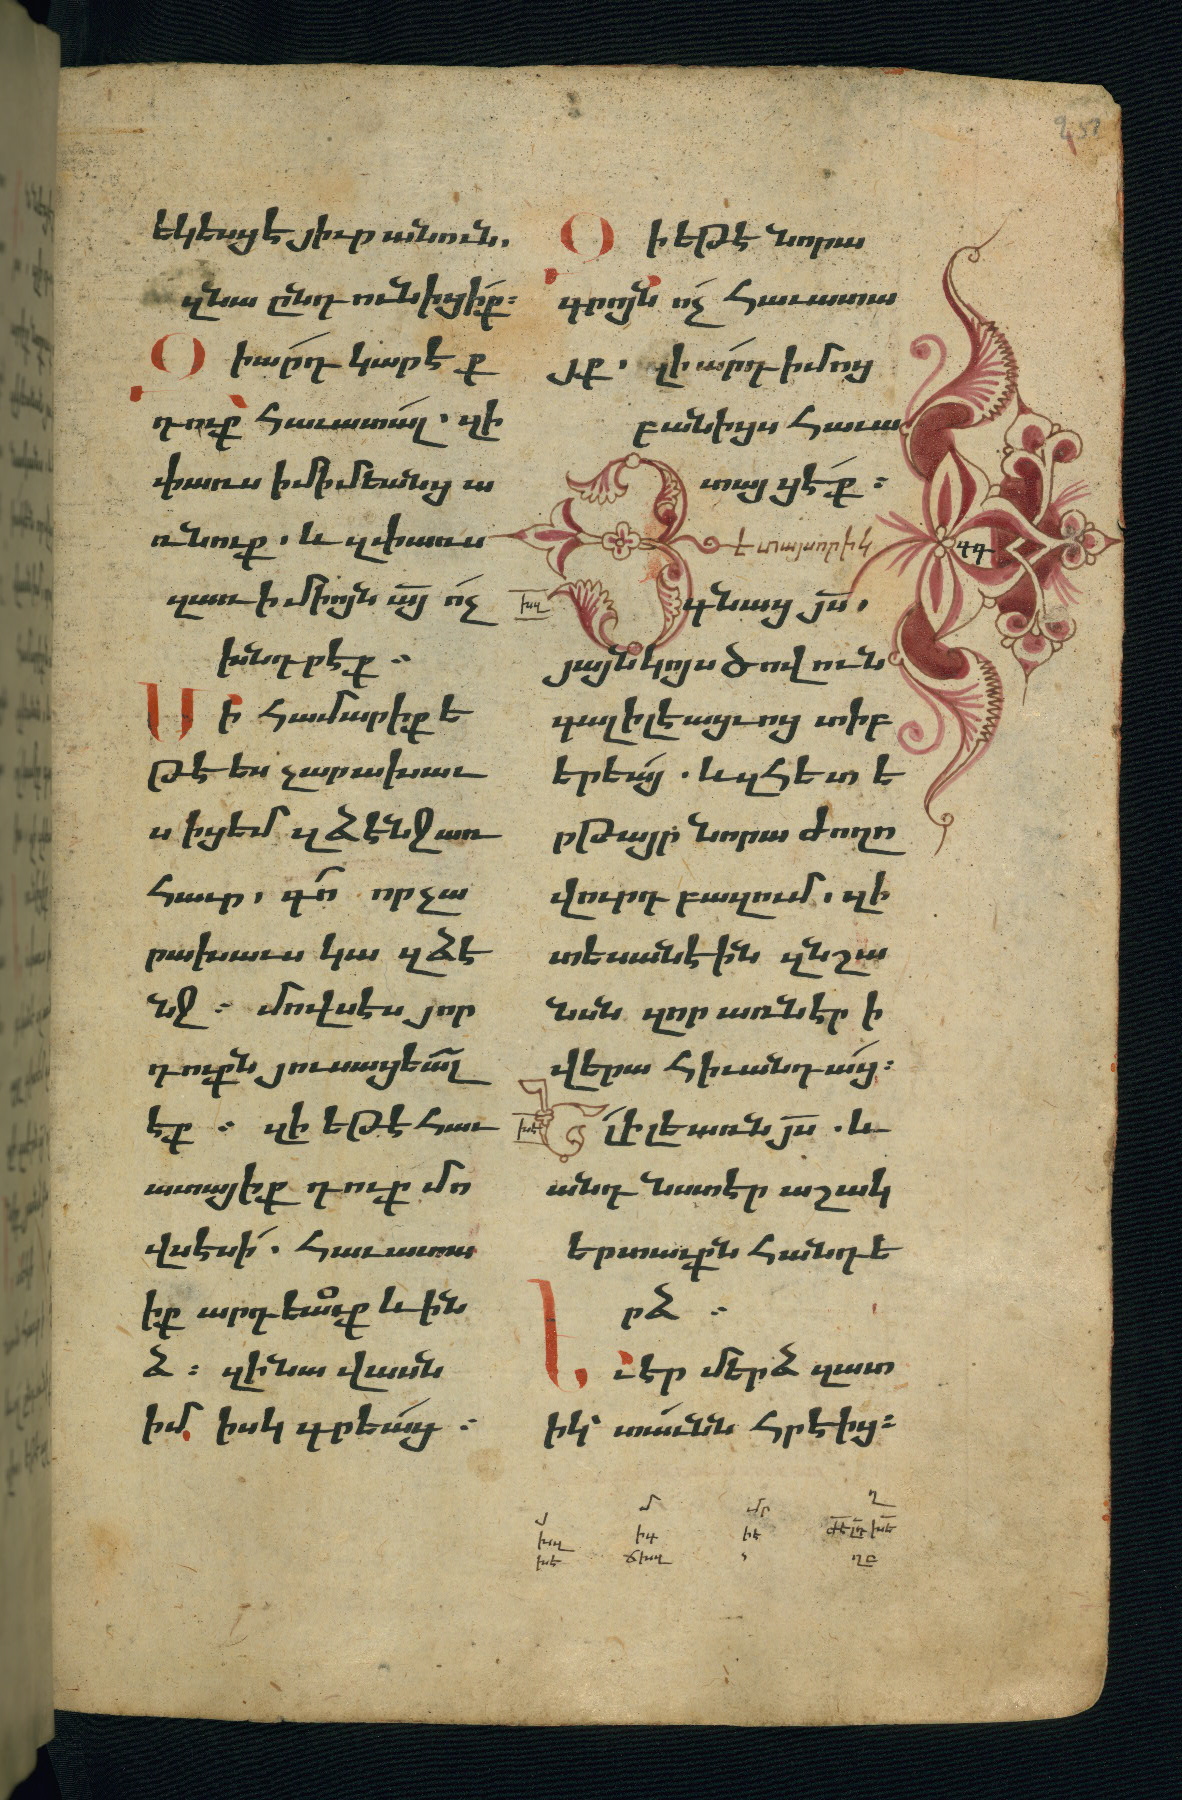 եկեսցէ յիւր անուն.
զնա ընդունիցիք։
Զիարդ կարէք
դուք հաւատալ. զի
փառս ի միմեանց ա
ռնուք. և զփառս
զառ ի միոյն այ ոչ
խնդրէք։
Մի համարիք ե
թէ ես չարախաւ
ս իցեմ զձէնջ առ
հաւր, գո՛ որ չա
րախաւս կա զձէ
նջ։ մովսէս յոր
դուքն յուսացեալ
էք։ զի եթէ հաւ
ատայիք դուք մո
վսէսի. հաւատա
իք արդեաւք և ին
ձ։ զի նա վասն
իմ իսկ գրեաց։
Զի եթէ նորա
գրոյն ոչ հաւատա
յք. զիարդ իմոց
բանիցս հաւա
տայցէք։
Զ
է տայսորիկ
գնաց յս,
յայնկոյս ծովուն
գաղիլեացւոց տիբ
երեայ. և զհետ ե
րթայր նորա ժողո
վուրդ բազում. զի
տեսանէին զնշա
նսն զոր առնէր ի
վերա հիւանդաց։
Ել ի լեառն յս. և
անդ նստէր աշակ
երտաւքն հանդե
րձ։
Եւ էր մերձ զատ
իկ՝ տաւնն հրէից։